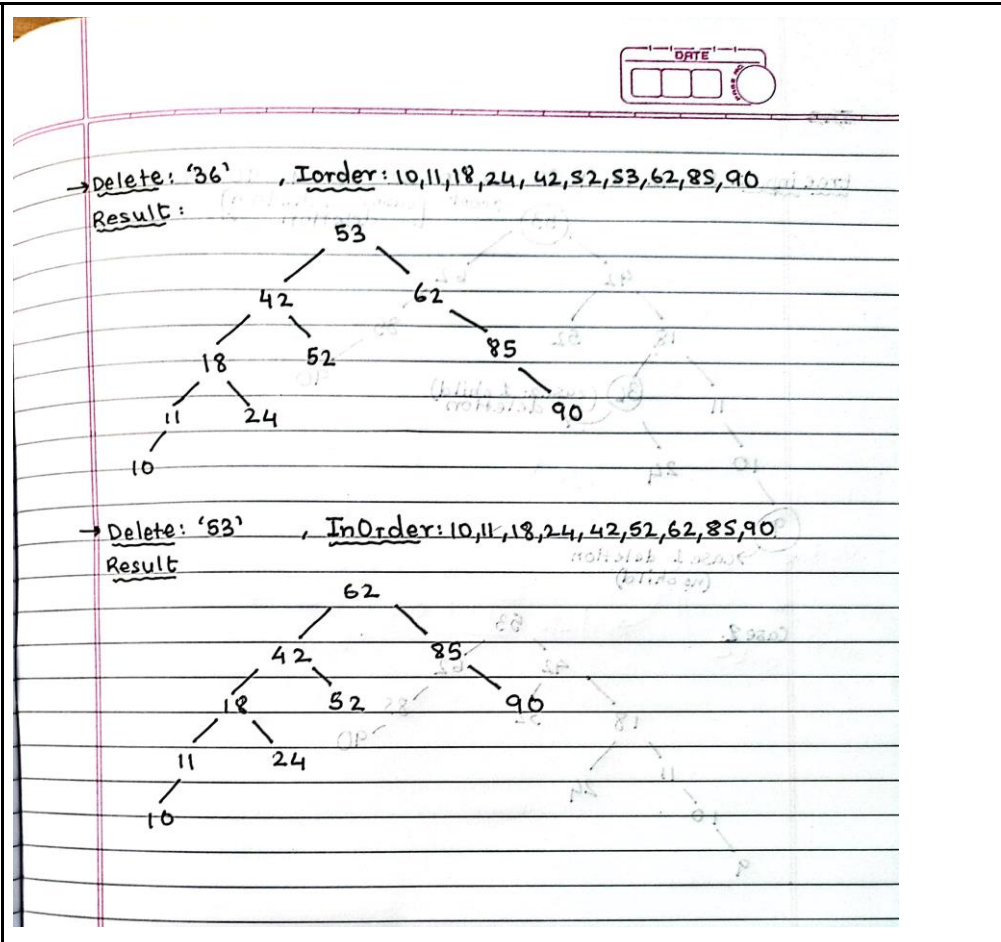 DATE
→ Delete: '36' , Iorder: 10,11,18,24, 42,52,53,62,85,90
Result:
53
42 62
18 52 85
11 24 90
10
→ Delete: '53' , InOrder: 10,11,18,24,42,52,62,85,90
Result
62
42 85
18 52 90
11 24
10